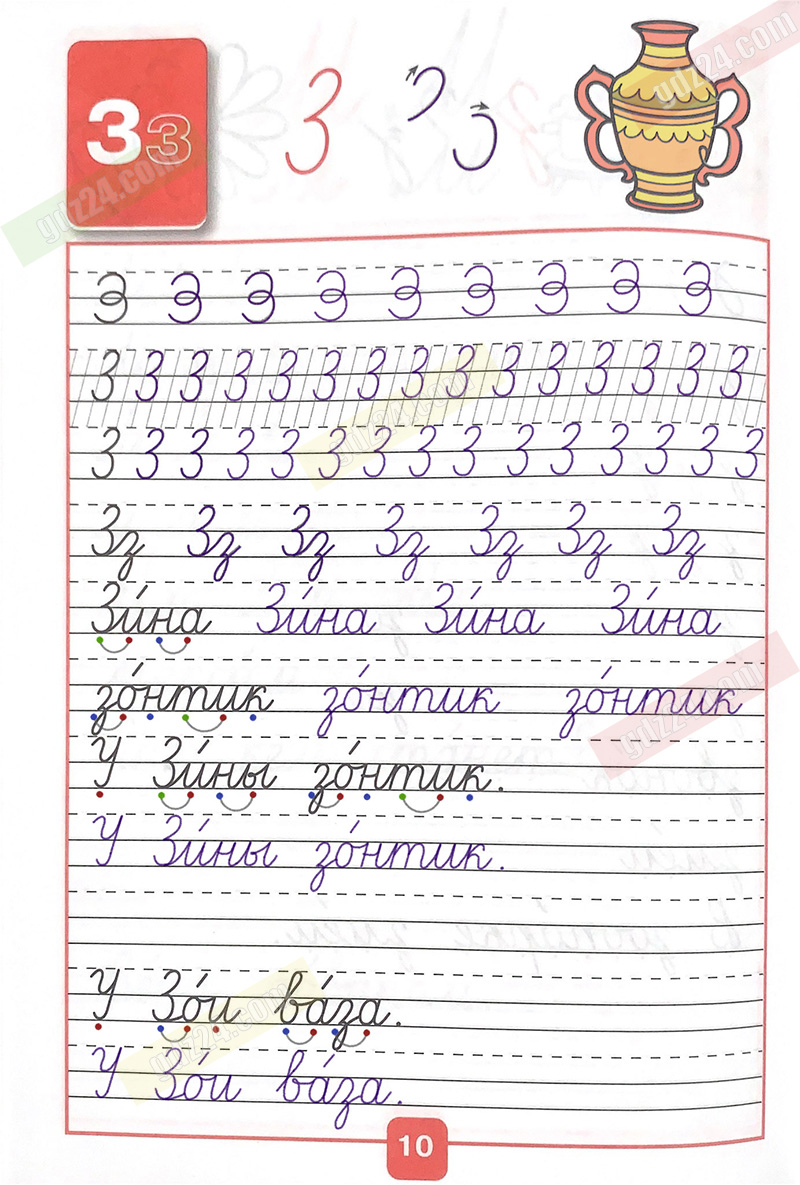 З з З
gdz24.com
gdz24.com
З З З З З З З З З
З З З З З З З З З З З З З З З
gdz24.com
З З З З З З З З З З З З З З З
Зз Зз Зз Зз Зз Зз Зз
Зи́на Зи́на Зи́на Зи́на
зо́нтик зо́нтик зо́нтик
gdz24.com
У Зи́ны зо́нтик.
У Зи́ны зо́нтик.
У Зо́и ва́за.
gdz24.com
У Зо́и ва́за.
10